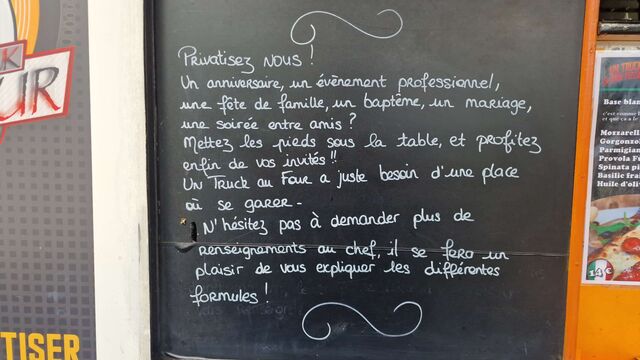 Privatisez NOUS !
Un anniversaire, un évènement professionnel,
une fête de famille, un baptême, un mariage,
une soirée entre amis ?
Mettez les pieds sous la table, et profitez
enfin de vos invités !!
Un Truck au Four a juste besoin d'une place
où se garer -
N'hésitez pas à demander plus de
renseignements au chef, il se fera un
plaisir de vous expliquer les différentes
formules !
UR
TISER
UN TRUCK
Base blan
Mozzarell
Gorgonzol
Parmigian
Provola Fu
Spinata pi
Basilic frai
Huile d'oliv
14 €